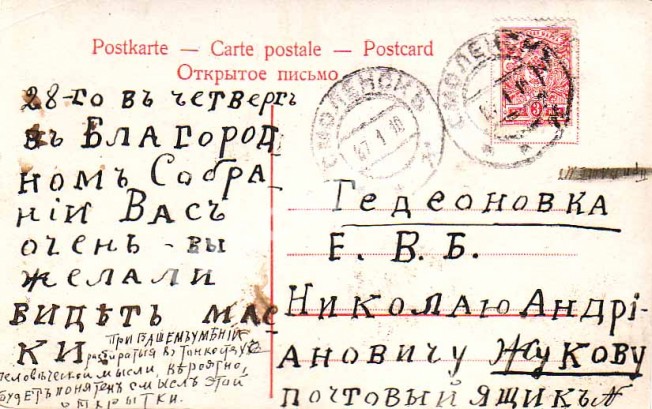 Postkarte — Carte postale — Postcard
Открытое письмо
28-го въ четвергъ
въ Благород
номъ Собра
ніи Васъ
очень-бы
желали
видѣть мас
ки
При Вашемъ умѣніи
въ тонкостяхъ
человѣческой мысли, вѣроятно,
будетъ понятенъ смыслъ этой
открытки.
СМОЛЕНСКЪ
27 1 10
СМОЛЕНСКЪ
Гедеоновка
Е. В. Б.
Николаю Андрі-
ановичу Жукову
почтовый ящикъ №